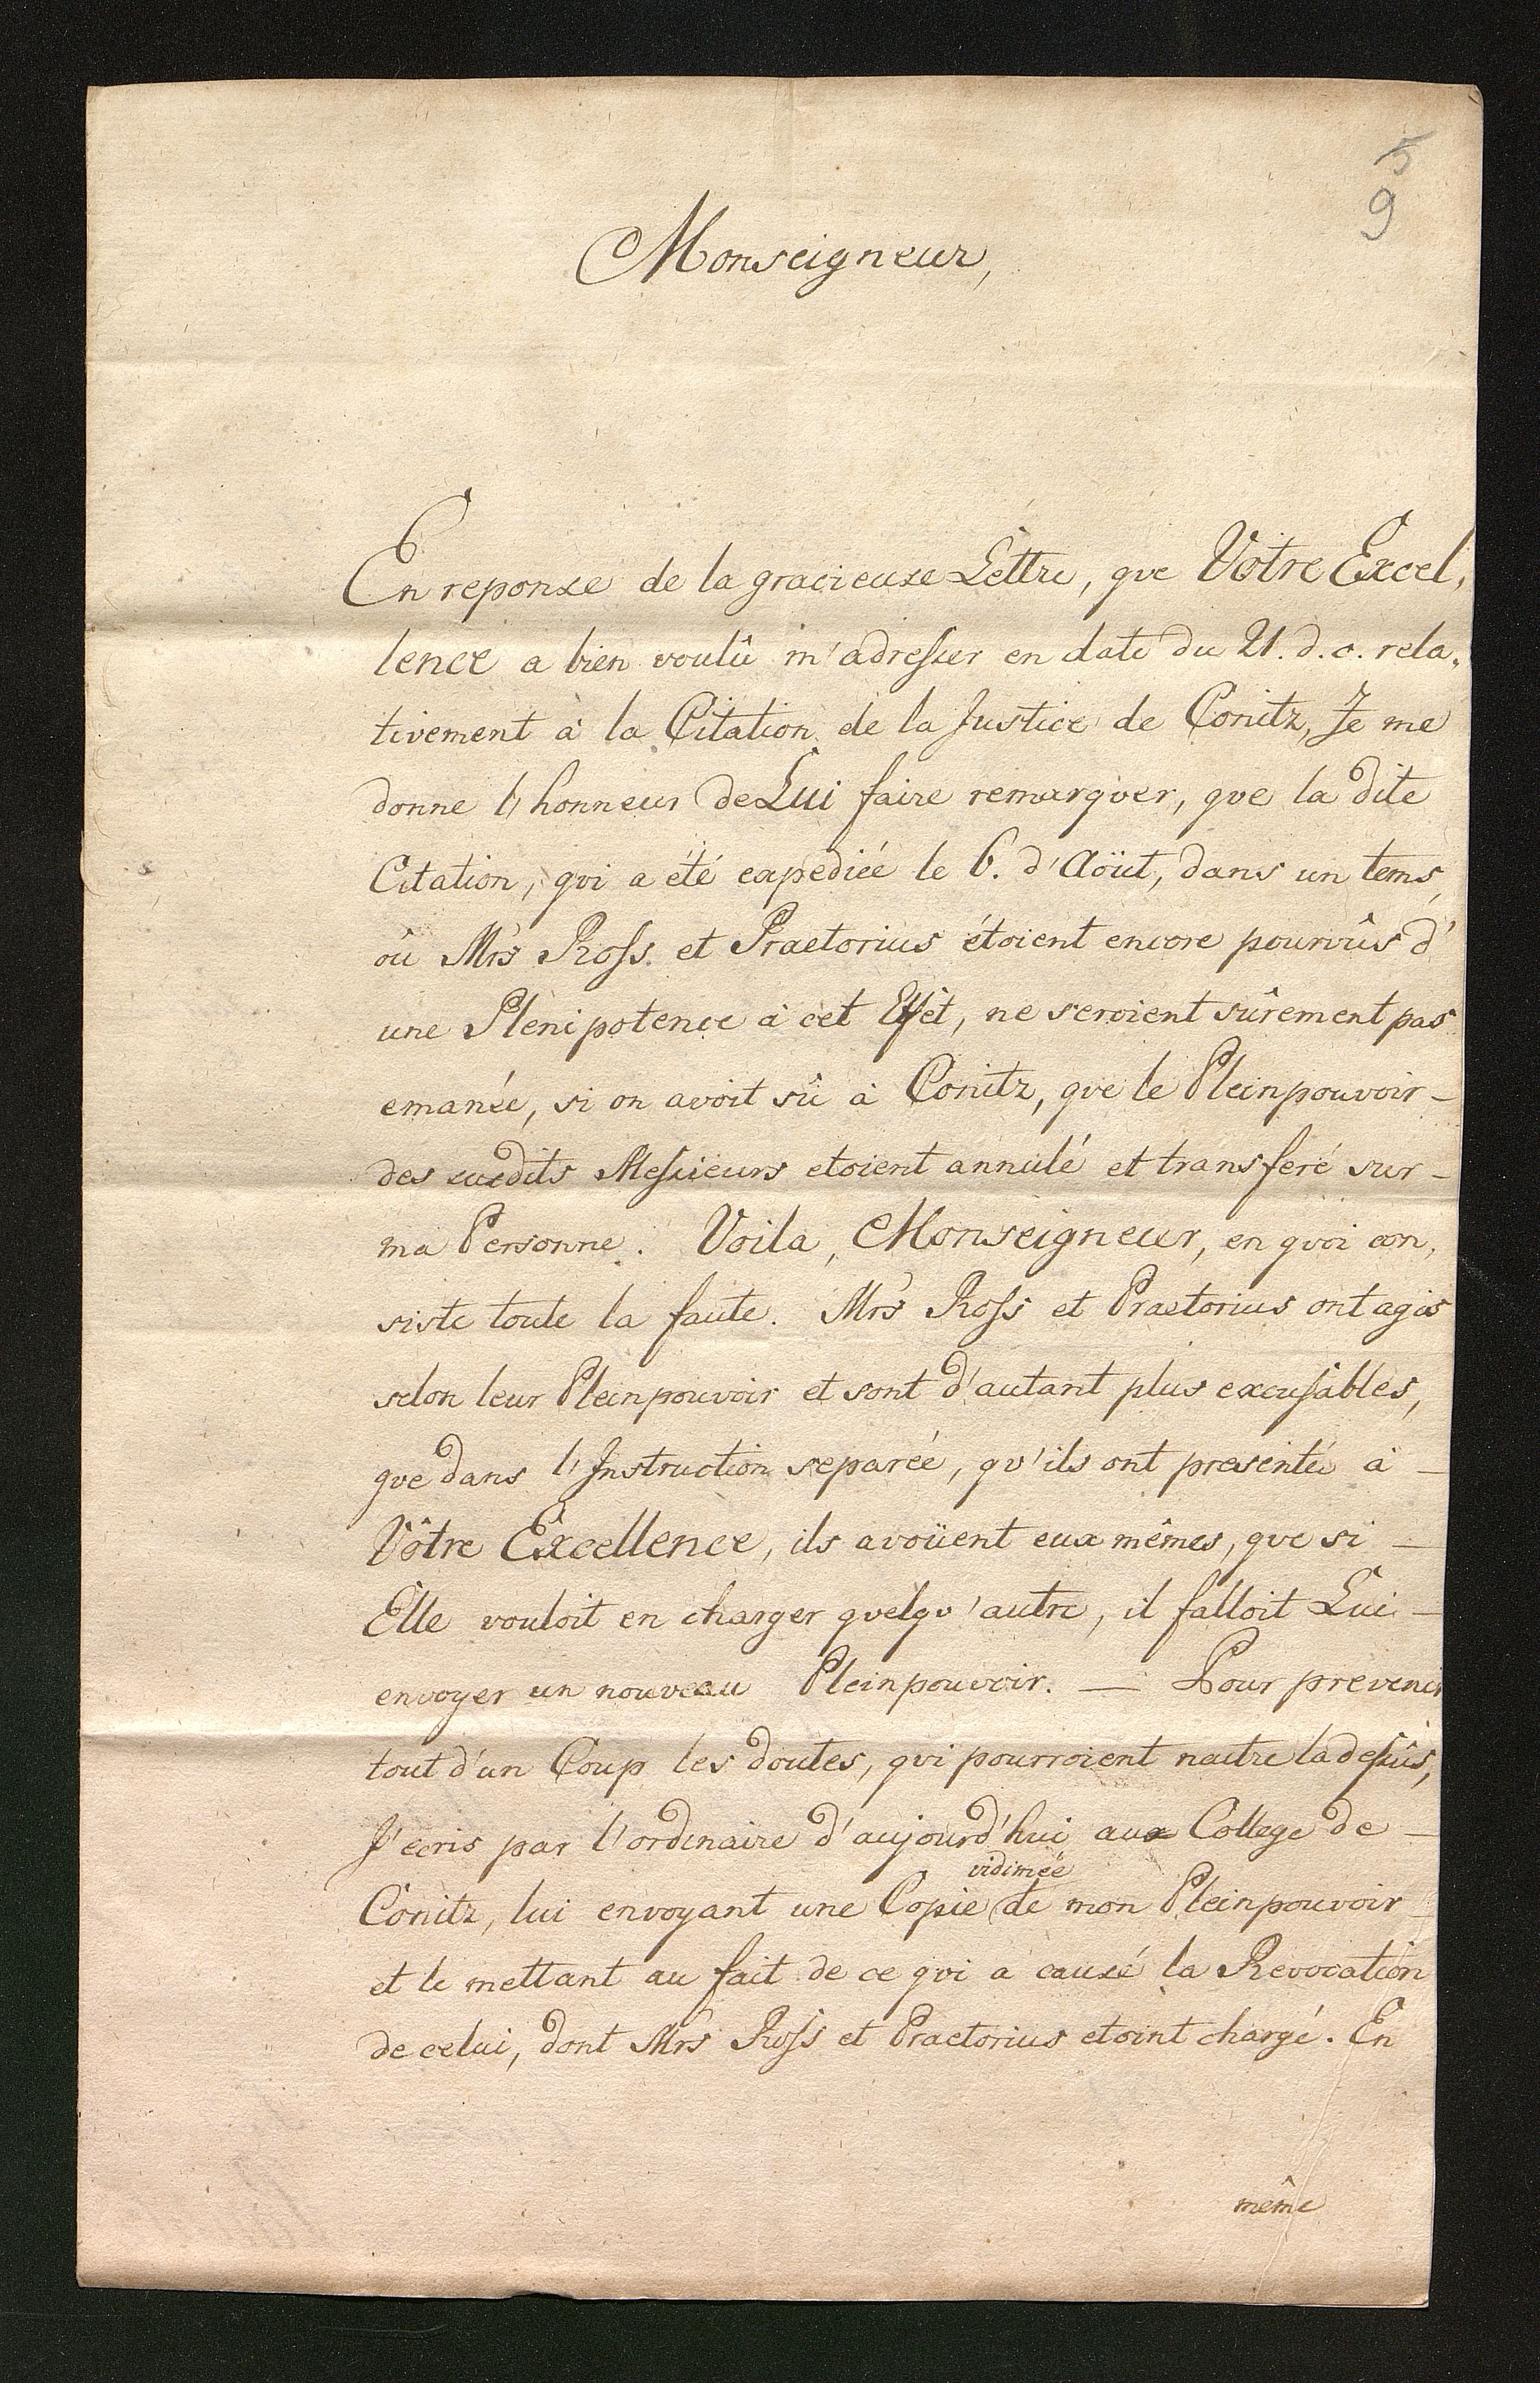 5
9
Monseigneur,
En reponse de la gracieuse Lettre, que Vôtre Excel,
lence a bien voulû m'adresser en date du 21. d. c. rela,
tivement à la Citation de la Justice de Conitz, Je me
donne l'honneur de Lui faire remarquer, que la dite
Citation, qui a été expediée le 6. d'Aöut, dans un tems,
où Mrs Ross et Praetorius étoient encore pourvûs d'
une Plenipotence à cet Effêt, ne seroient sûrement pas
emanée, si on avoit sû à Conitz, que le Pleinpouvoir -
des susdits Messieurs etoient annulé et transferé sur -
ma Personne. Voila, Monseigneur, en quoi con,
siste toute la faute. Mrs Ross et Praetorius ont agis
selon leur Pleinpouvoir et sont d'autant plus excusables,
que dans l'Instruction separée, qu'ils ont presentée à -
Vôtre Excellence, ils avoüent eux mêmes, que si -
Elle vouloit en charger quelqu'autre, il falloit Lui -
envoyer un nouveau Pleinpouvoir. — Pour prevenir
tout d'un Coup les doutes, qui pourroient naitre ladessûs,
J'ecris par l'ordinaire d'aujourd'hui au College de -
vidimée
Conitz, lui envoyant une Copie de mon Pleinpouvoir
et le mettant au fait de ce qui a causé la Revocation
de celui, dont Mrs Ross et Praetorius etoint chargé. En
même